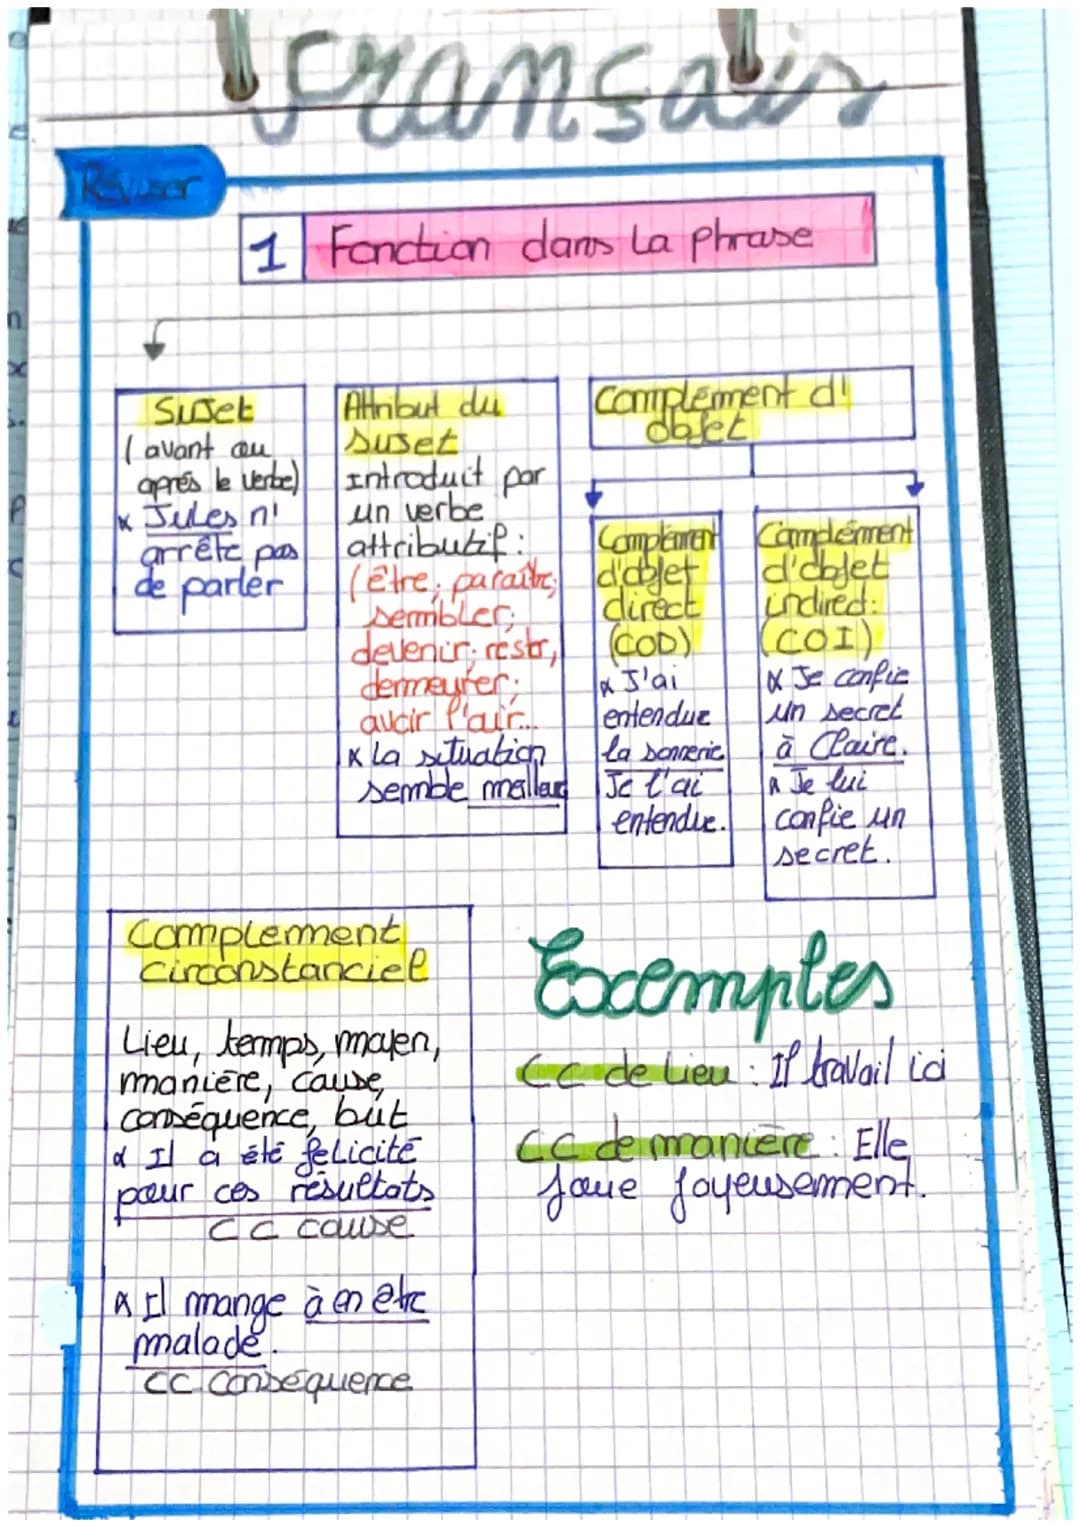 Français
Réviser
1 Fonction dans la phrase
Sujet
(avant ou
après le verbe)
x Jules n'
arrête pas
de parler
Attribut du
sujet
Introduit par
un verbe
attributif :
(être; paraître;
sembler;
devenir; restr,
demeurer;
avoir l'air...
x La situation
semble meilleur
Complément d'
objet
Complément
d'objet
direct
(COD)
x J'ai
entendue
la sonnerie
Je l'ai
entendue.
Complément
d'objet
indirect:
(COI)
x Je confie
un secret
à Claire.
x Je lui
confie un
secret.
Complement
circonstanciel
Lieu, temps, moyen,
manière, cause,
conséquence, but
x Il a été félicité
pour ces résultats
CC cause
x Il mange à en être
malade.
CC conséquence
Exemples
CC de Lieu : Il travail ici
CC de manière : Elle
joue joyeusement.